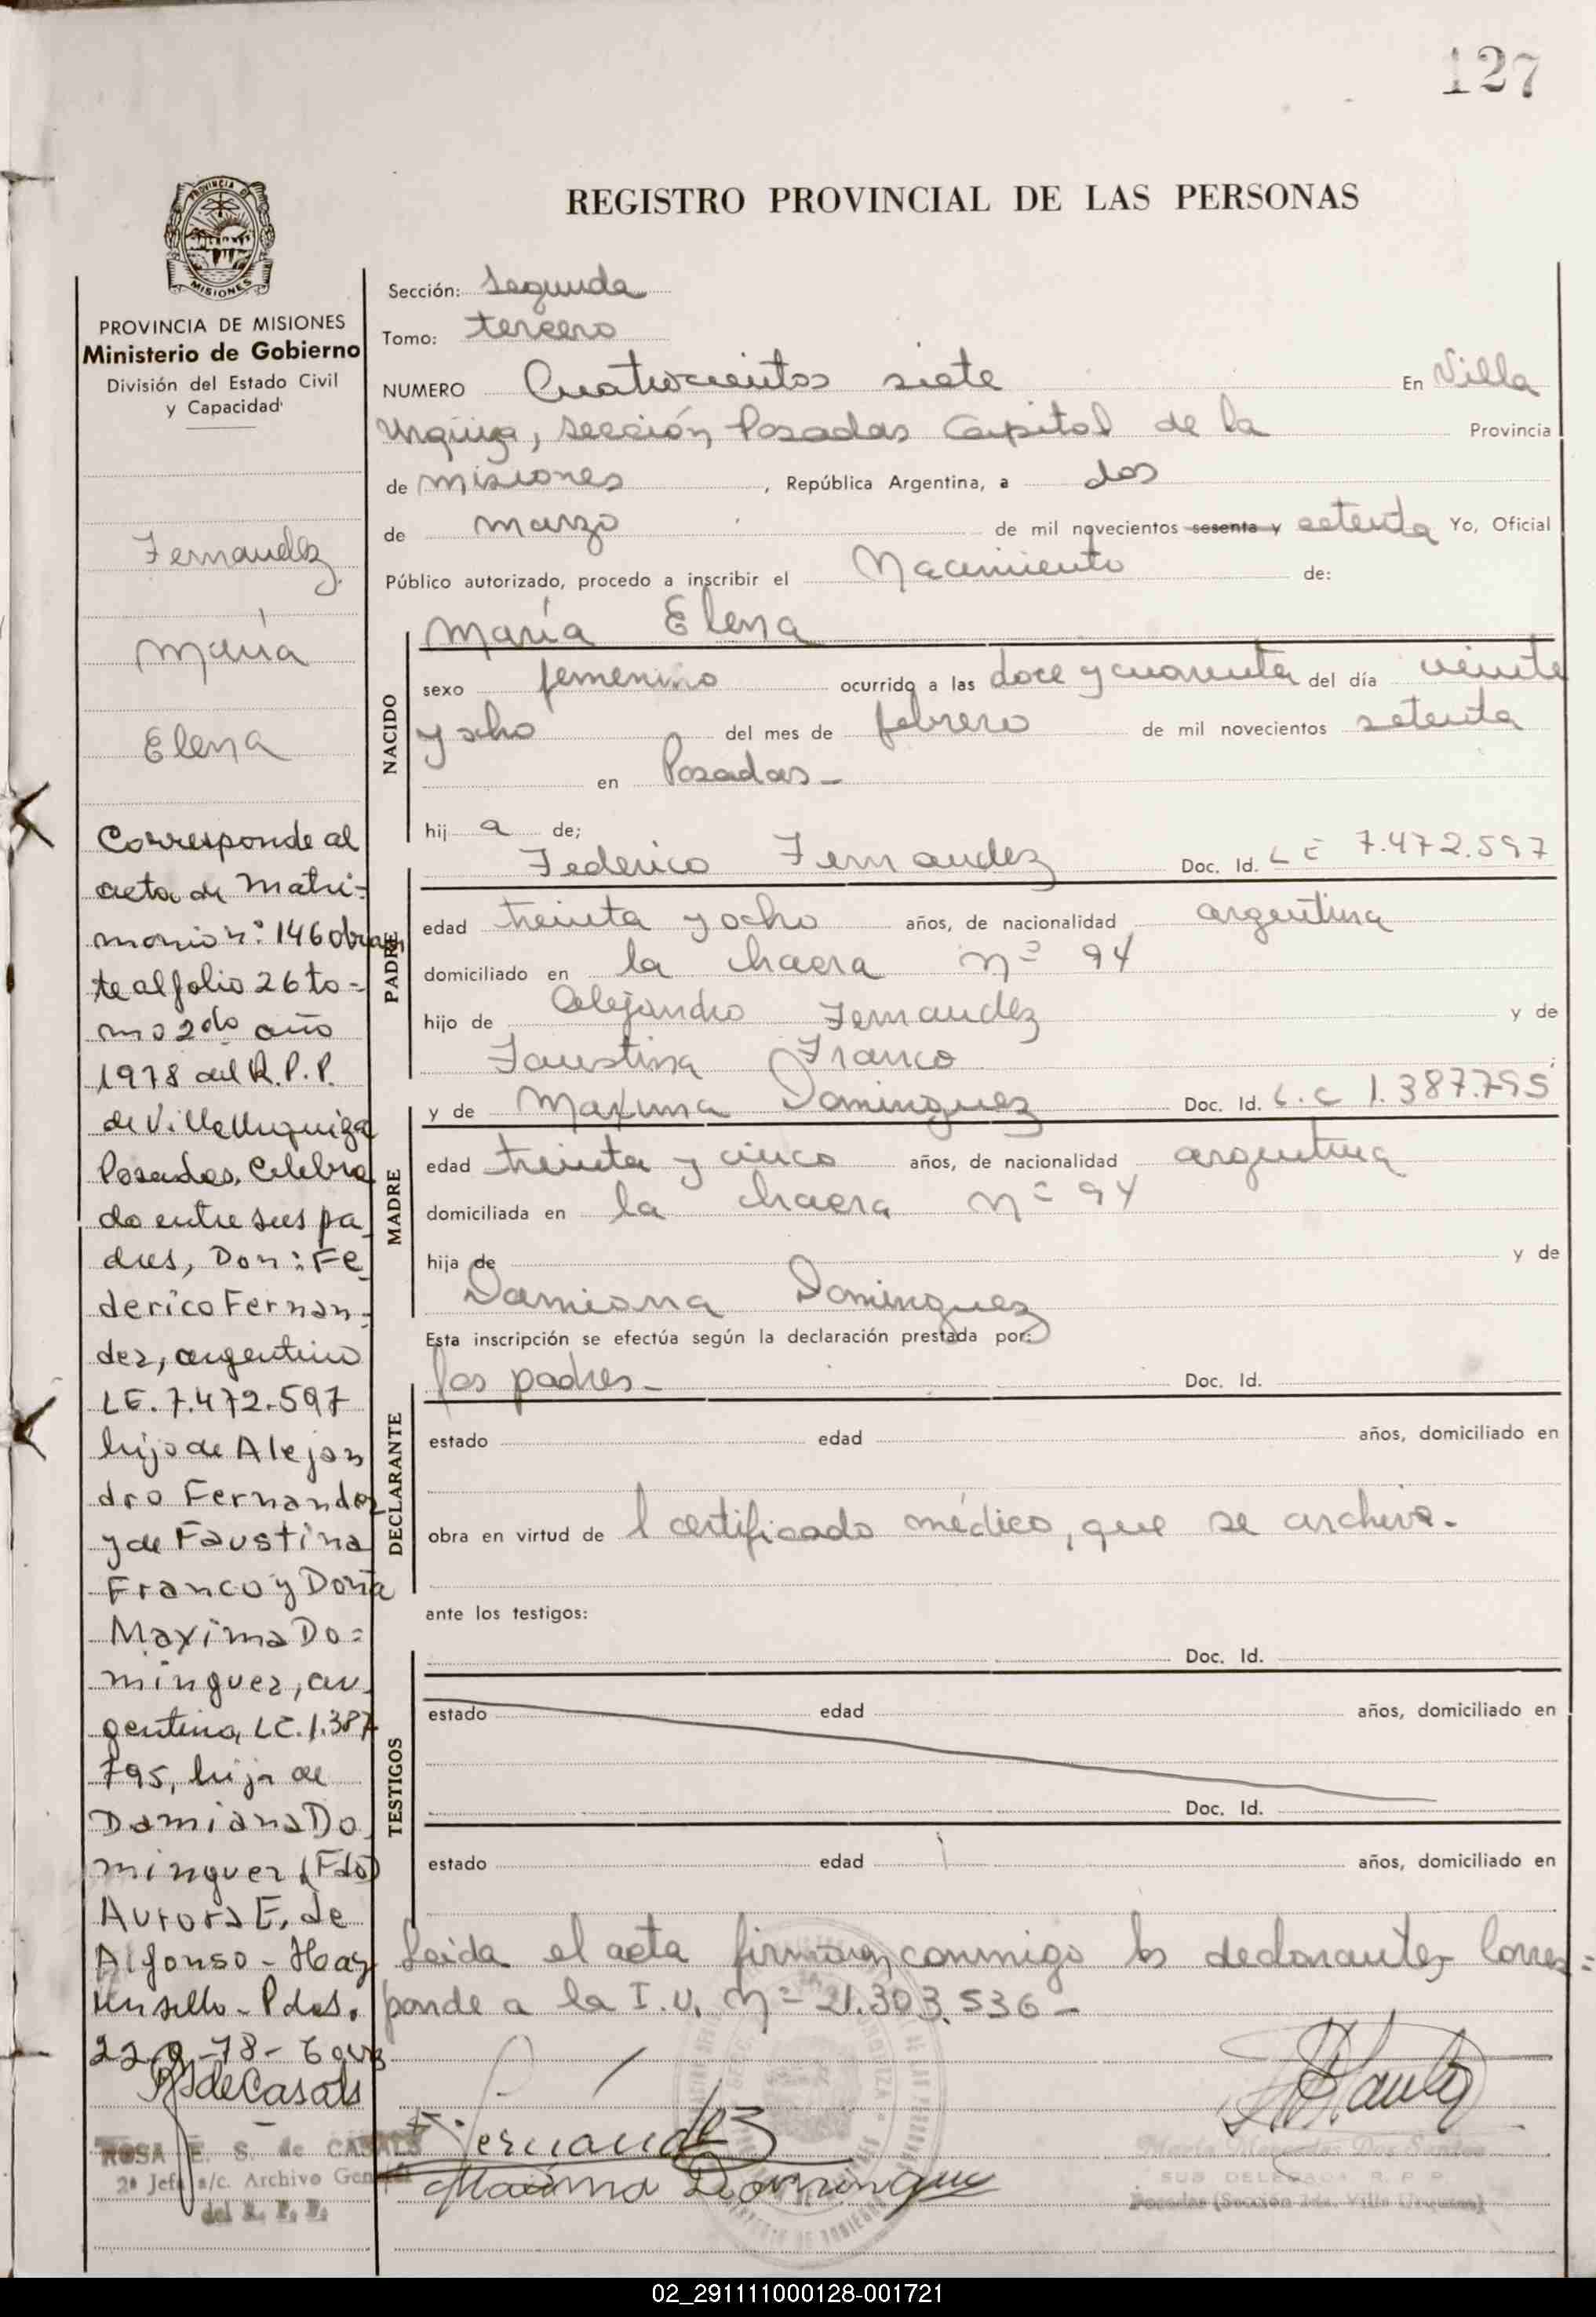 127
REGISTRO PROVINCIAL DE LAS PERSONAS
PROVINCIA DE MISIONES
Ministerio de Gobierno
División del Estado Civil
y Capacidad
Fernandez
María
Elena
Corresponde al
acta de Matri-
monio n° 146 obran
te al folio 26 to-
mo 2do año
1978 del R.P.P.
de Villa Urquiza
Posadas. Celebra
do entre sus pa
dres, Don: Fe
derico Fernan-
dez, argentino
LE. 7.472.597
hijo de Alejan
dro Fernandez
y de Faustina
Franco y Doña
Maxima Do=
minguez, ar
gentina, LC. 1.387
795, hija de
Damiana Do
minguez (Fdo)
Aurora E. de
Alfonso - Hay
un sello - Pdas.
22-9-78-
RSdeCasals
ROSA E. S. de CASALS
2ª Jefa a/c. Archivo General
del R. P. P.
Sección: Segunda
Tomo: tercero
NUMERO Cuatrocientos siete En Villa
Urquiza, sección Posadas Capital de la Provincia
de Misiones, República Argentina, a dos
de marzo de mil novecientos sesenta y setenta Yo, Oficial
Público autorizado, procedo a inscribir el Nacimiento de:
NACIDO
María Elena
sexo femenino ocurrido a las doce y cuarenta del día veinte
y ocho del mes de febrero de mil novecientos setenta
en Posadas -
hija de;
PADRE
Federico Fernandez Doc. Id. LE 7.472.597
edad treinta y ocho años, de nacionalidad argentina
domiciliado en la chacra nº 94
hijo de Alejandro Fernandez y de
Faustina Franco
MADRE
y de Maxima Dominguez Doc. Id. L.C 1.387.795
edad treinta y cinco años, de nacionalidad argentina
domiciliada en la chacra nº 94
hija de y de
Damiana Dominguez
Esta inscripción se efectúa según la declaración prestada por:
DECLARANTE
los padres - Doc. Id.
estado edad años, domiciliado en
obra en virtud de l certificado médico, que se archiva.-
ante los testigos:
TESTIGOS
Doc. Id.
estado edad años, domiciliado en
Doc. Id.
estado edad años, domiciliado en
Leida el acta firman conmigo los declarantes Corres=
ponde a la I.U. nº 21.303.536 -
Fernández
Maxima Dominguez
María Mercedes Dos Santos
SUB DELEGADA R. P. P.
Posadas (Sección 2da. Villa Urquiza)
02_291111000128-001721